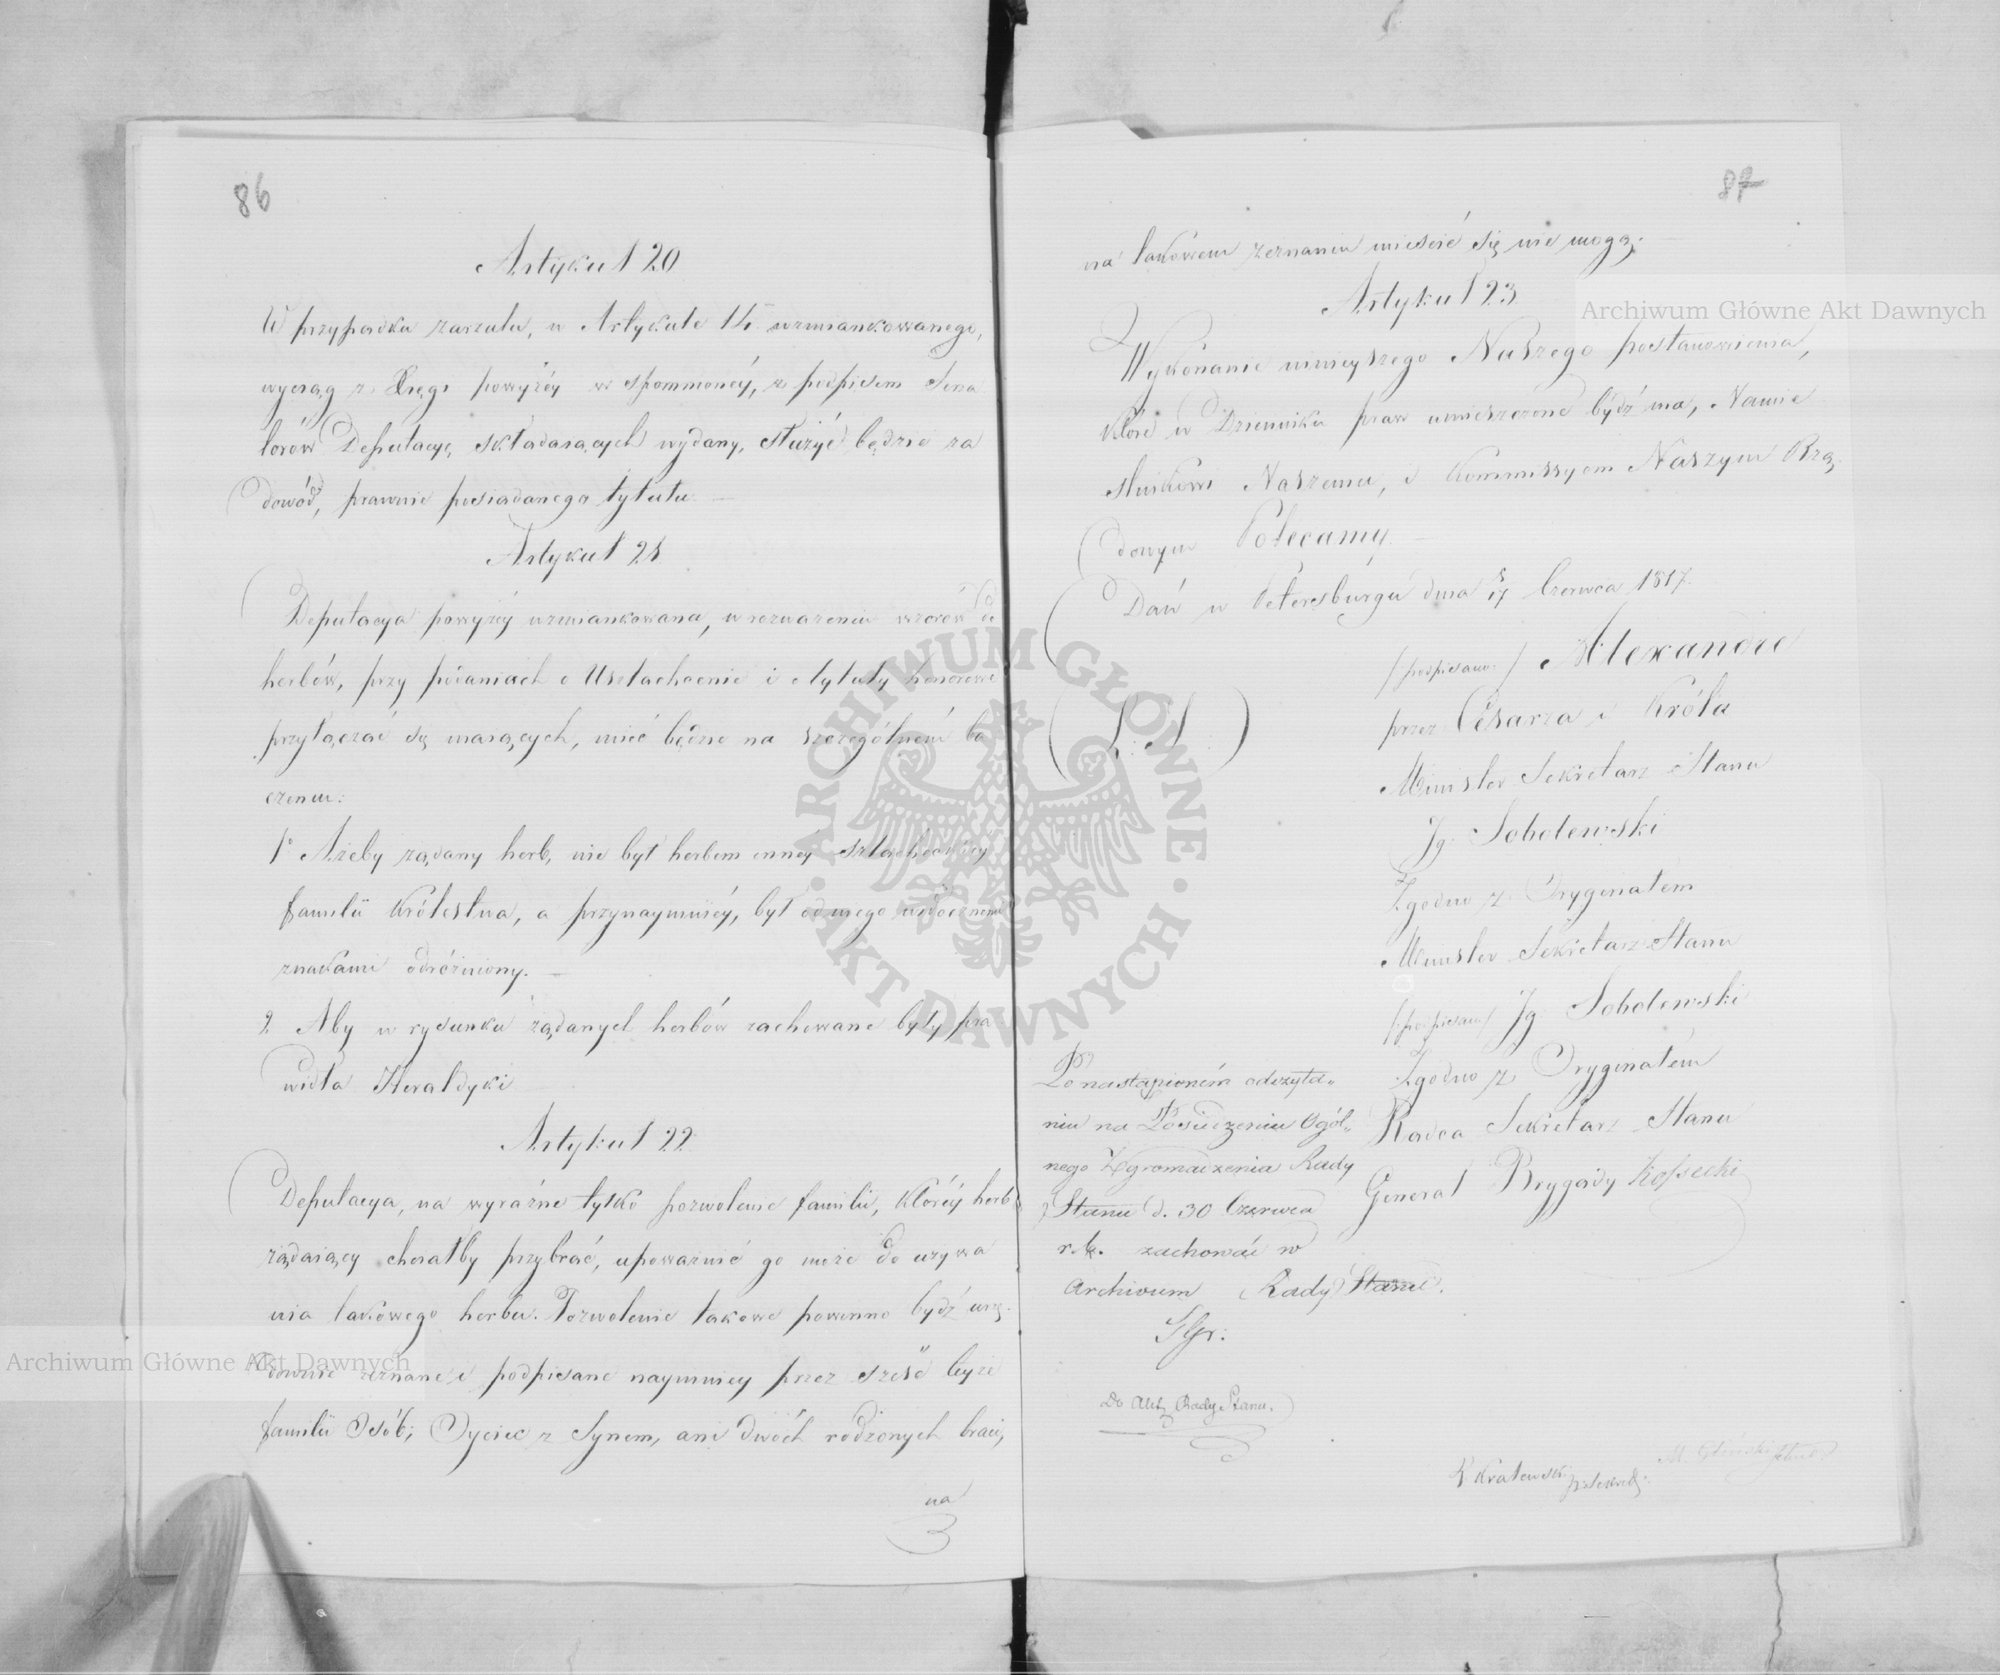 86
Artykuł 20
W przypadku zarzutu, w Artykule 14 wzmiankowanego,
wyciąg z Xięgi powyżéy wspomnionéy, z podpisem Sena
torów Deputacyę składaiących wydany, służyć będzie za
dowód, prawnie posiadanego tytułu. —
Artykuł 21
Deputacya powyżéy wzmiankowana, w rozważeniu wzorów do
herbów, przy podaniach o Uszlachcenie i o tytuły honorowe
przyłączać się maiących, mieć będzie na szczególném ba
czeniu:
1° Ażeby żądany herb, nie był herbem innéy szlacheckiéy
familii Królestwa, a przynaymniéy, był od niego widocznemi
znakami odróżniony. —
2 Aby w rysunku żądanych herbów zachowane były pra
widła Heraldyki
Artykuł 22
Deputacya, na wyraźne tylko pozwolenie familii, któréy herb
żądaiący chciałby przybrać, upoważnić go może do używa
nia takowego herbu. Pozwolenie takowe powinno bydź urzę
downie zeznane i podpisane naymniey przez sześć teyże
familii Osób; Oyciec z Synem, ani dwóch rodzonych braci,
na
87
na takowem zeznaniu mieścić się nie mogą.
Artykuł 23
Wykonanie ninieyszego Naszego postanowienia,
które w Dzienniku praw umieszczone bydź ma, Namie
stnikowi Naszemu, i Kommissyom Naszym Rzą
dowym Polecamy. —
Dań w Petersburgu dnia 5/17 Czerwca 1817.
/podpisano:/ Alexander
przez Cesarza i Króla
(L. S.)
Minister Sekretarz Stanu
Ig. Sobolewski
Zgodno z Oryginałem
Minister Sekretarz Stanu
/podpisano/ Ig. Sobolewski
Zgodno z Oryginałem
Radca Sekretarz Stanu
Generał Brygady Kossecki
Po nastąpioném odczyta„
niu na Posiedzeniu Ogól„
nego Zgromadzenia Rady
Stanu d. 30 Czerwca
r. b. zachować w
Archivum Rady Stanu.
Do Akt Rady Stanu.
Archiwum Główne Akt Dawnych
Archiwum Główne Akt Dawnych
ARCHIWUM GŁÓWNE
AKT DAWNYCH